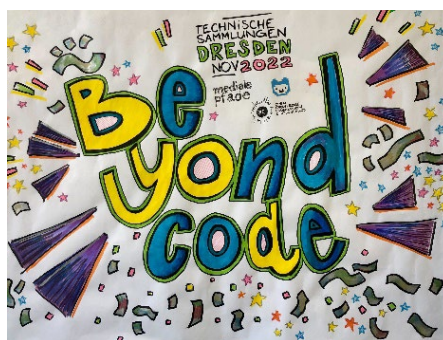 TECHNISCHE
SAMMLUNGEN
DRESDEN
NOV 2022
mediale
pfade
Be
yond
code